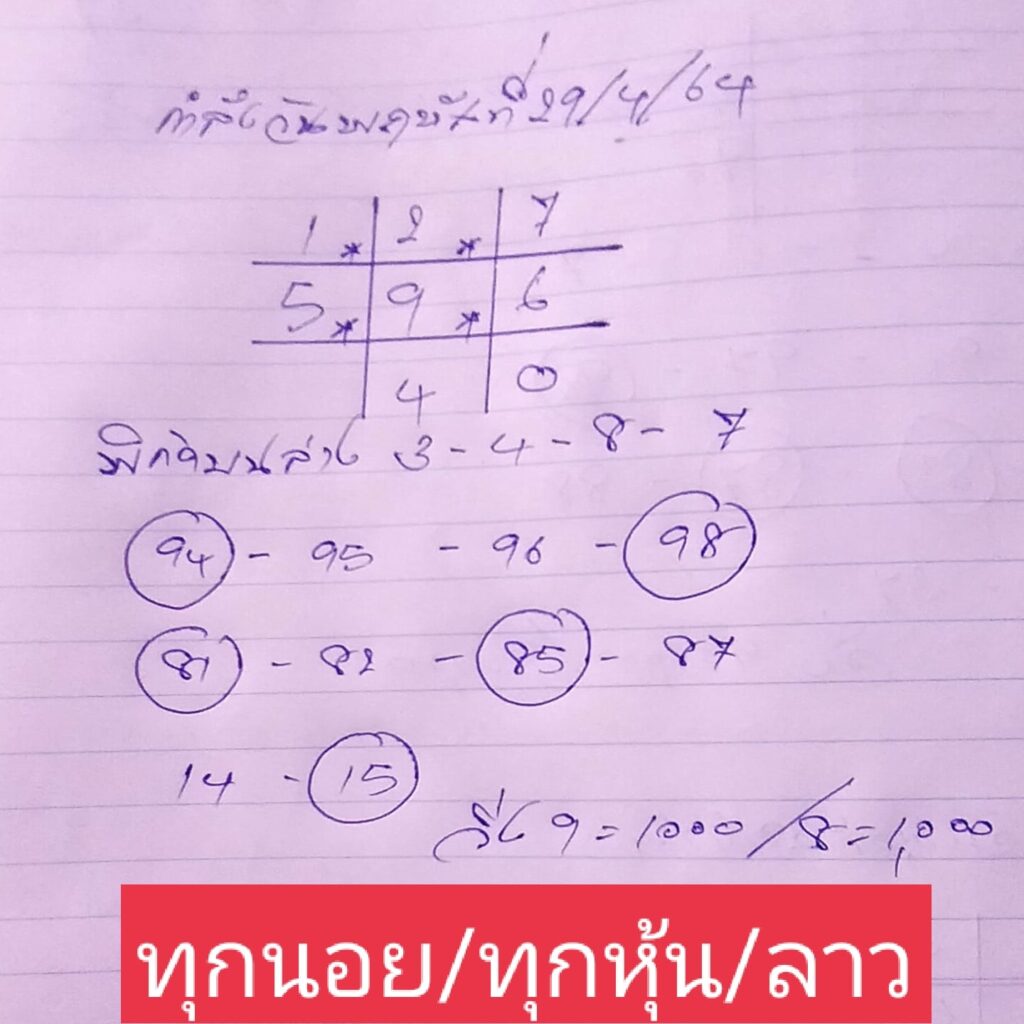 กำลังวันพฤหัสที่ 29/4/64
1 * 2 * 7
5 * 9 * 6
4 0
พิกัดบนล่าง 3 - 4 - 8 - 7
94 - 95 - 96 - 98
81 - 82 - 85 - 87
14 - 15
วิ่ง 9 = 1000 / 8 = 1,000
ทุกนอย/ทุกหุ้น/ลาว